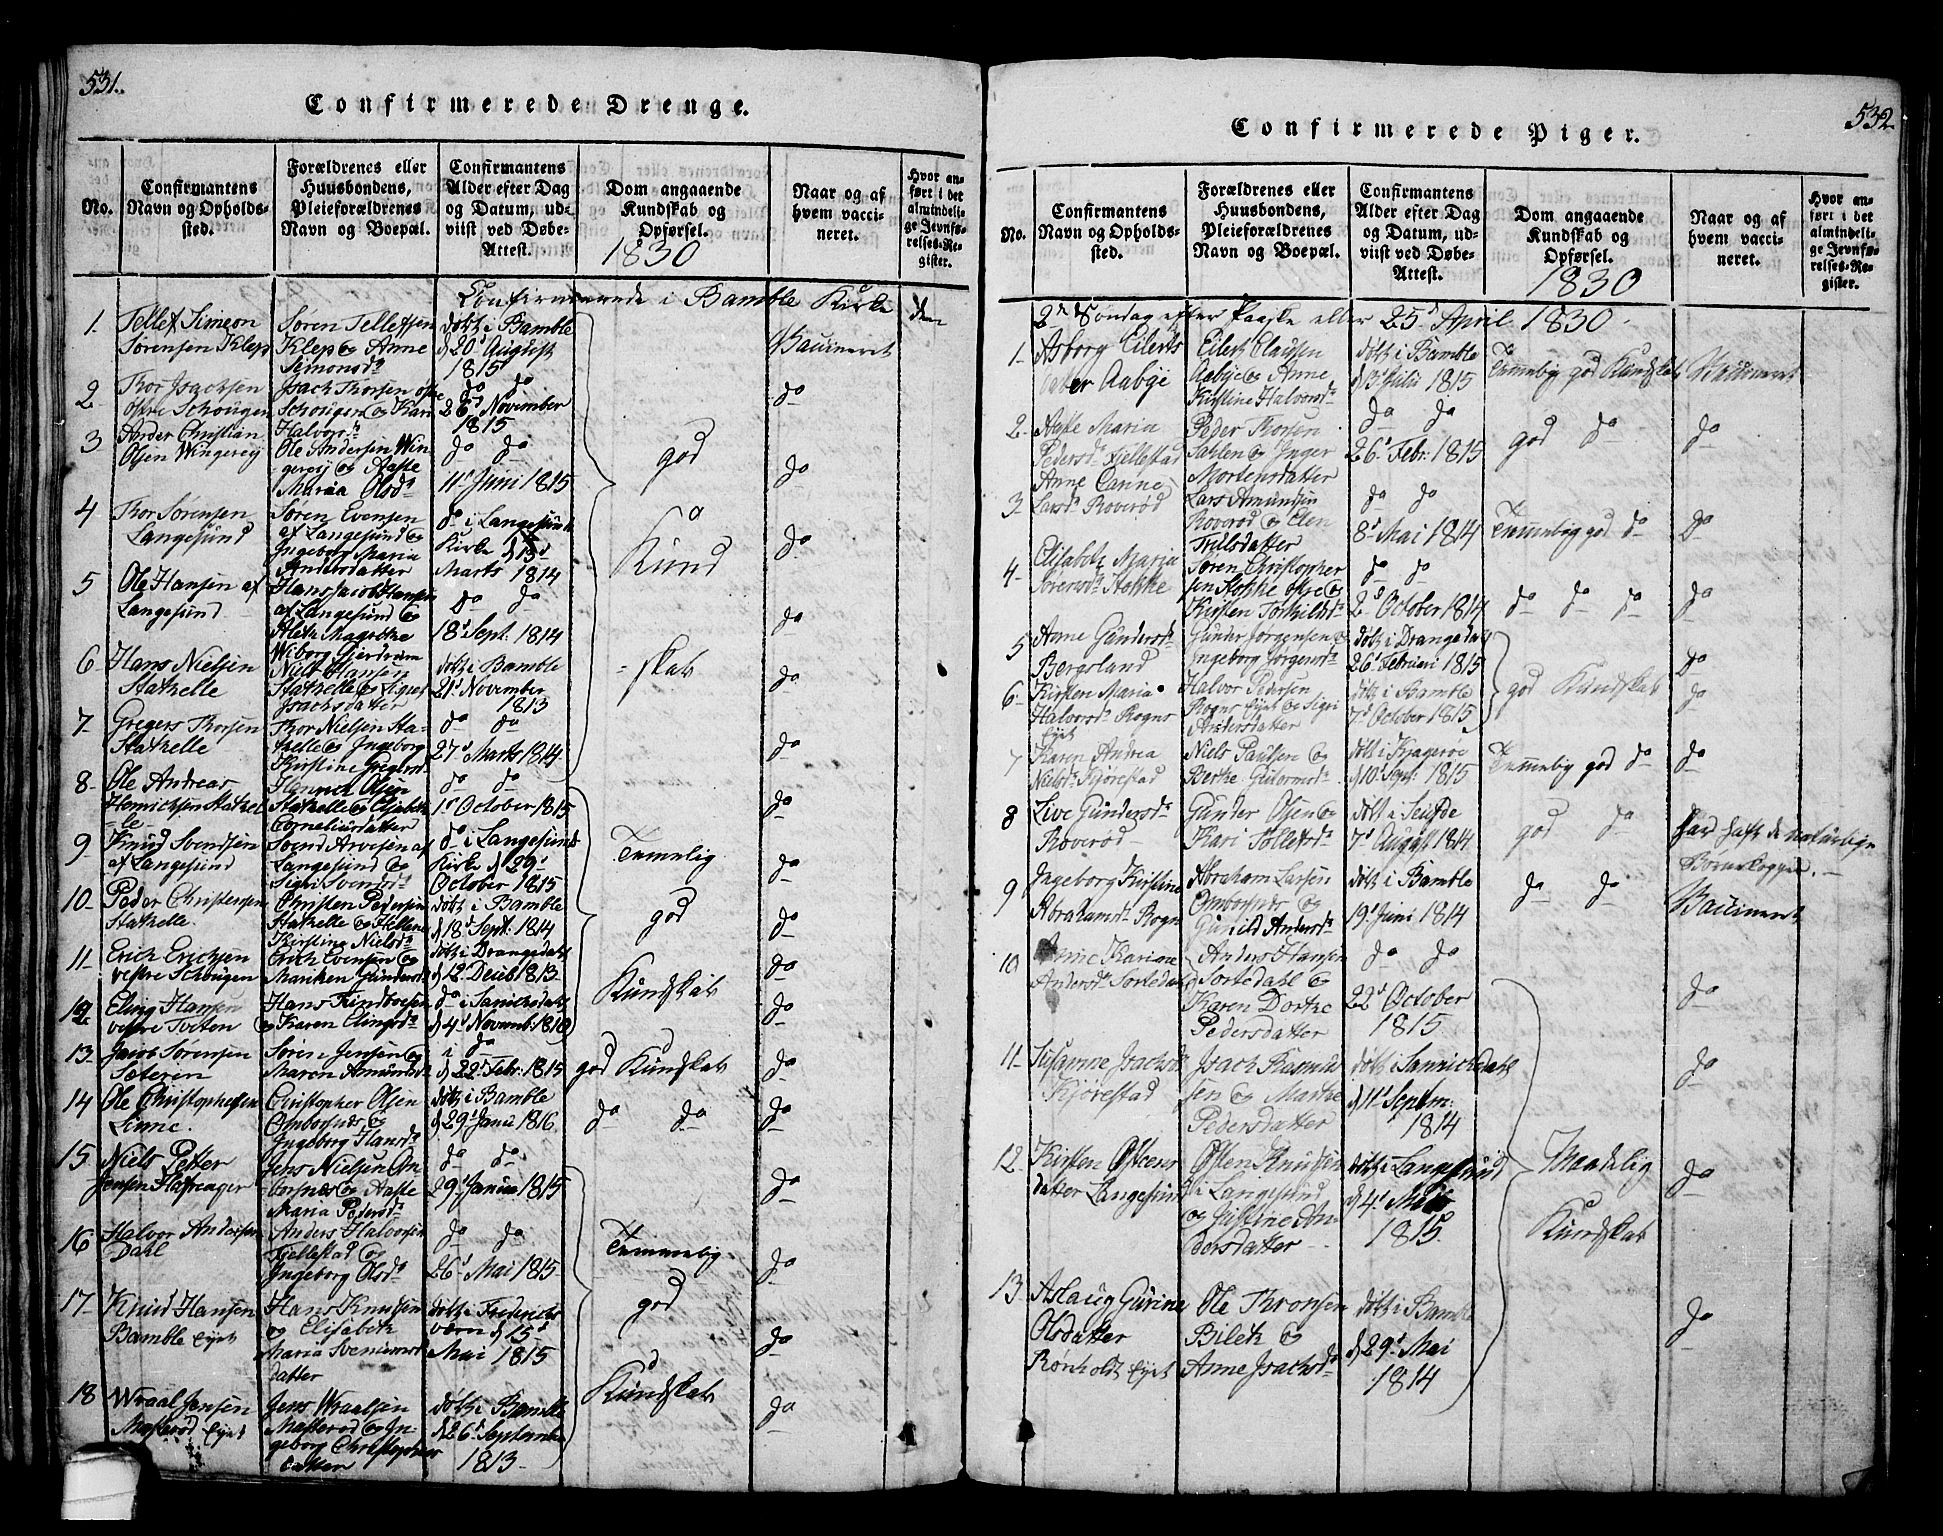 531.
Confirmerede Drenge.
No.
Confirmantens Navn og Opholdssted.
Forældrenes eller Huusbondens, Pleieforældrenes Navn og Boepæl.
Confirmantens Alder efter Dag og Datum, udviist ved Døbe-Attest.
Dom angaaende Kundskab og Opførsel.
1830
Naar og af hvem vaccineret.
Hvor anført i det almindelige Jevnførelses-Register.
Confirmerede i Bamble Kirke den
1. Tellef Simeon Sørensen Klep
Søren Tellefsen Klep og Anne Simonsdr
døbt i Bamble d 20d August 1815
Vaccineret
2 Thor Isachsen østre Schougen
Isach Thorsen østre Schougen og Kari Halvorsdr
do do 26d November 1815
do
3 Ander Christian Olsen Wingereij
Ole Andersen Wingereij og Aaste Maria Olsdr
do do 11d Juni 1815
god
do
4 Thor Sørensen Langesund
Søren Evensen af Langesund og Ingeborg Maria Andersdatter
do i Langesunds Kirke d 15d Marts 1814
Kund
do
5 Ole Hansen af Langesund
Hans Jacob Hansen af Langesund og Alethe Magrethe Wiborg Gjerdrum
do do 18d Sept: 1814
do
6 Hans Nielsen Stathelle
Niels Hansen Stathelle og Signe Isachsdatter
døbt i Bamble 21d November 1813
-skab
do
7- Gregers Thorsen Stathelle
Thor Nielsen Stathelle og Ingeborg Kirstine Gregersdr
do do 27d Marts 1814
do
8- Ole Andreas Henrichsen Stathelle
Henrich Olsen Stathelle og Elisabeth Corneliusdatter
do do 1d October 1815
do
9- Knud Svendsen af Langesund
Svend Arvesen af Langesund og Sigri Svendsdr
do i Langesunds Kirke d 29d October 1815
Temmelig
do
10- Peder Christensen Stathelle
Christen Pedersen Stathelle og Hellene Kirstine Nielsdr
døbt i Bamble d 18d Sept: 1814
god
do
11- Erich Erichsen vestre Schougen
Erich Evensen og Mariken Gundersdr
døbt i Drangedahl d 12 Decb 1813
Kundskab
do
12 Eling Hansen vestre Tveten
Hans Findvesen og Karen Elingsdr
do i Sanichedahl d 4d Novemb: 1810
do
13- Jacob Sørensen Sæteren
Søren Jensen og Maren Amundsdr
i do d 22d Febr: 1815
god Kundskab
do
14 Ole Christophersen Sinne.
Christopher Olsen Omborsnes og Ingeborg Hansdr
døbt i Bamble d 29d Janu 1816
do do
do
15 Niels Petter Jensen Hafsager
Jens Nielsen Omborsnes og Aaste Maria Pedersdr
do do 29d Januar 1815
do
16 Halvor Andersen Dahl
Anders Halvorsen Fjellestad og Ingeborg Olsdr
do do 26d Mai 1815
Temmelig
do
17- Knud Hansen Bamble Eyet
Hans Knudsen og Elisabeth Maria Sveniumsdatter
døbt i Frederiksværn d 15d Mai 1815
god
do
18 Wraal Jensen Masterød Eyet
Jens Wraalsen Masterød og Ingeborg Christophersdatter
døbt i Bamble d 26d September 1813
Kundskab
do
532
Confirmerede Piger.
No.
Confirmantens Navn og Opholdssted.
Forældrenes eller Huusbondens, Pleieforældrenes Navn og Boepæl.
Confirmantens Alder efter Dag og Datum, udviist ved Døbe-Attest.
Dom angaaende Kundskab og Opførsel.
1830
Naar og af hvem vaccineret.
Hvor anført i det almindelige Jevnførelses-Register.
2den Søndag efter Paaske eller 25d April 1830
1- Asborg Eilertsdatter Aabye
Eilert Clausen Aabye og Anne Kirstine Halvorsdr
døbt i Bamble d 3d Julii 1815
Temmelig god Kundskab
Vaccineret
2- Aaste Maria Pedersdr Fjellestad
Peder Thorsen Sahlen og Inger Mortensdatter
do do 26d Febr: 1815
god do
do
3- Anne Canne Larsdr Roverød
Lars Amundsen Roverød og Elen Trulsdatter
do do 8d Mai 1814
Temmelig god do
do
4- Elisabeth Maria Sørensdr Stokke
Søren Christophersen Stokke østre og Kirsten Torkildsdr
do do 2d October 1814
do do do
do
5 Anne Gundersdr Bergsland
Gunder Jørgensen og Ingeborg Jørgensdr
døbt i Drangedahl 26d Februari 1815
do
6- Kirsten Maria Halvorsdr Rogns Eyet
Halvor Pedersen Rogns Eyet og Sigri Andersdatter
døbt i Bamble 7d October 1815
god Kundskab
do
7 Karen Andrea Nielsdr Kjørestad
Niels Paulsen og Berthe Gulormsdr
døbt i Kragerøe d 10d Sept: 1815
Temmelig god do
do
8 Live Gundersdr Roverød
Gunder Olsen og Kari Tollefsdr
døbt i Seufde 7d August 1814
god do
har haft de naturlige Børnekopper.
9 Ingeborg Kirstine Abrahamsdr Rogn
Abraham Larsen Omborsnes og Gunild Andersdr
døbt i Bamble 19d Juni 1814
do do
Vaccineret
10 Anne Karine Andersdr Sortedal
Anders Hansen Sortedahl og Karen Dorthe Pedersdatter
do do 22d October 1815
do
11- Susanne Isachsdr Kjørestad
Isach Rasmussen og Marthe Pedersdatter
døbt i Sannichedahl d 11d Septem: 1814
do
12. Kirsten Østensdatter Langesund
Østen Knudsen i Langesund og Justine Andersdatter
døbt i Langesund d 4d Mai 1815
Maadelig Kundskab
do
13 Aslaug Gurine Olsdatter Rønholdt Eyet
Ole Thronsen Bileth og Anne Isachsdr
døbt i Bamble d 29d Mai 1814
do